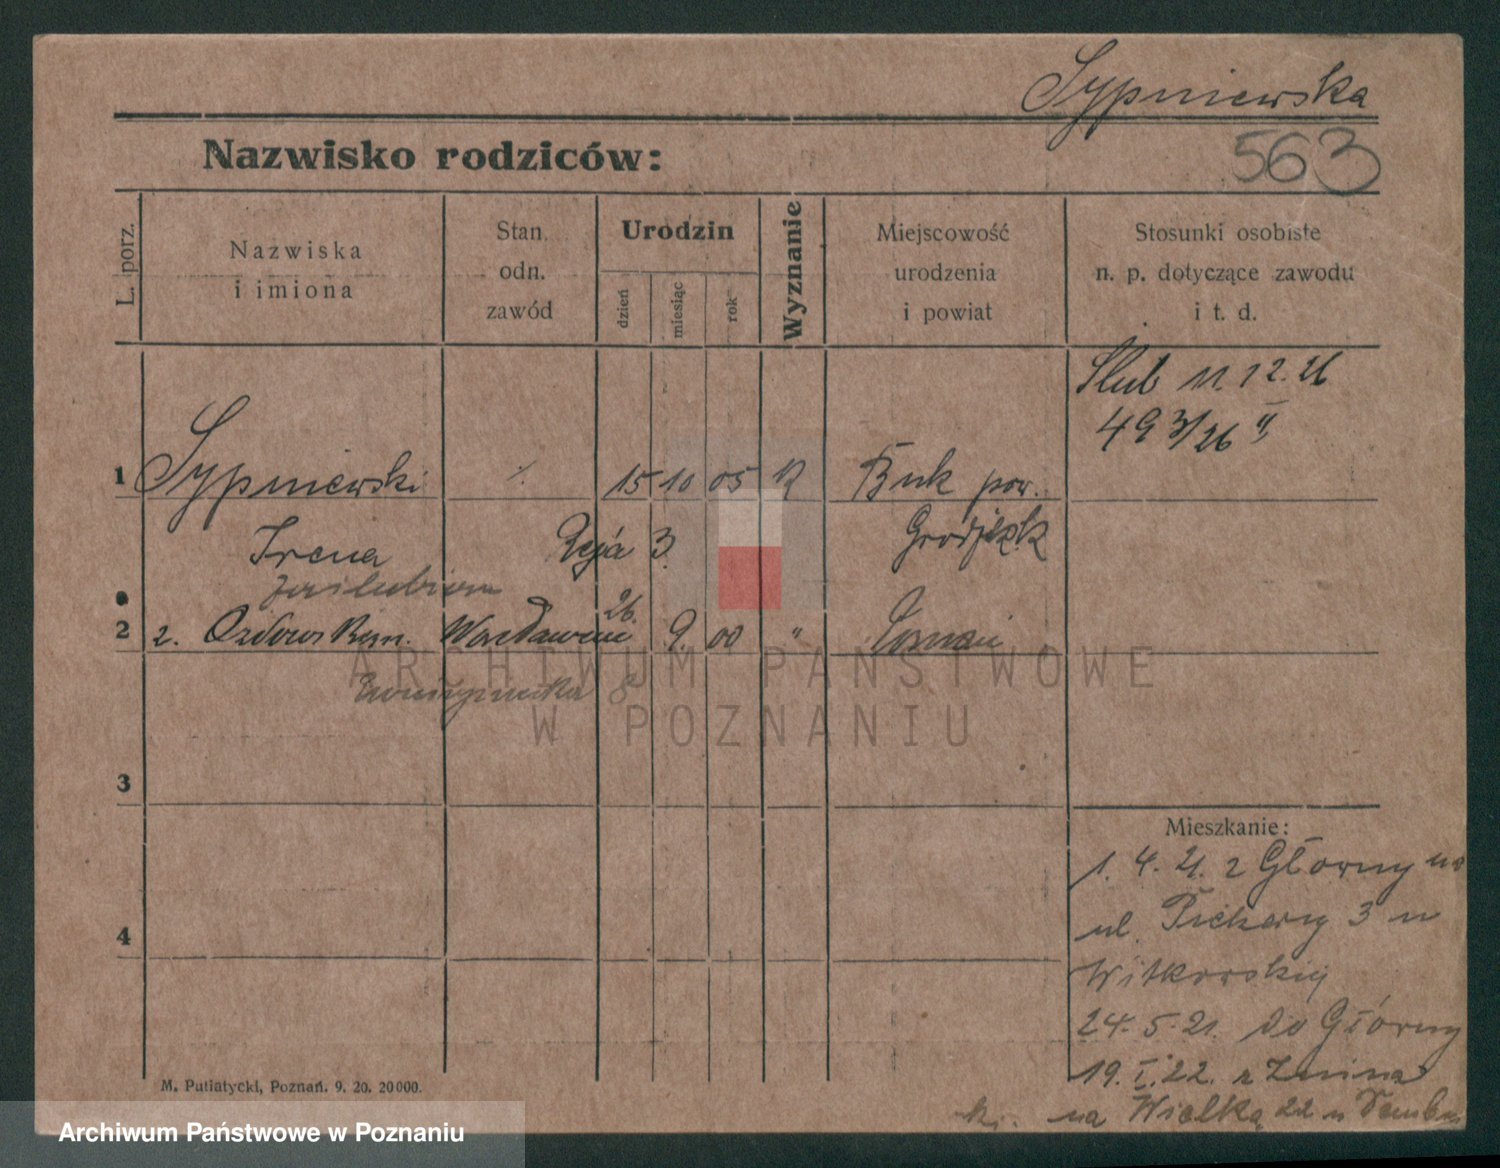 Sypniewska
Nazwisko rodziców:
563
L. porz.
Nazwiska
i imiona
Stan.
odn.
zawód
Urodzin
dzień
miesiąc
rok
Wyznanie
Miejscowość
urodzenia
i powiat
Stosunki osobiste
n. p. dotyczące zawodu
i t. d.
Ślub 11.12.26
493/26 II
1 Sypniewski 15 10 05 Buk pow.
Irena Reja 3
2 2. Wacławem 26. 9. 00 "
3
4
ARCHIWUM PAŃSTWOWE
W POZNANIU
Mieszkanie:
1. 4. 21. z Głowny na
ul. Piekary 3 u
Witkowskiej
24. 5. 21. do Główny
19. I. 22. z
na Wielką 22 u
M. Putiatycki, Poznań. 9. 20. 20000.
Archiwum Państwowe w Poznaniu